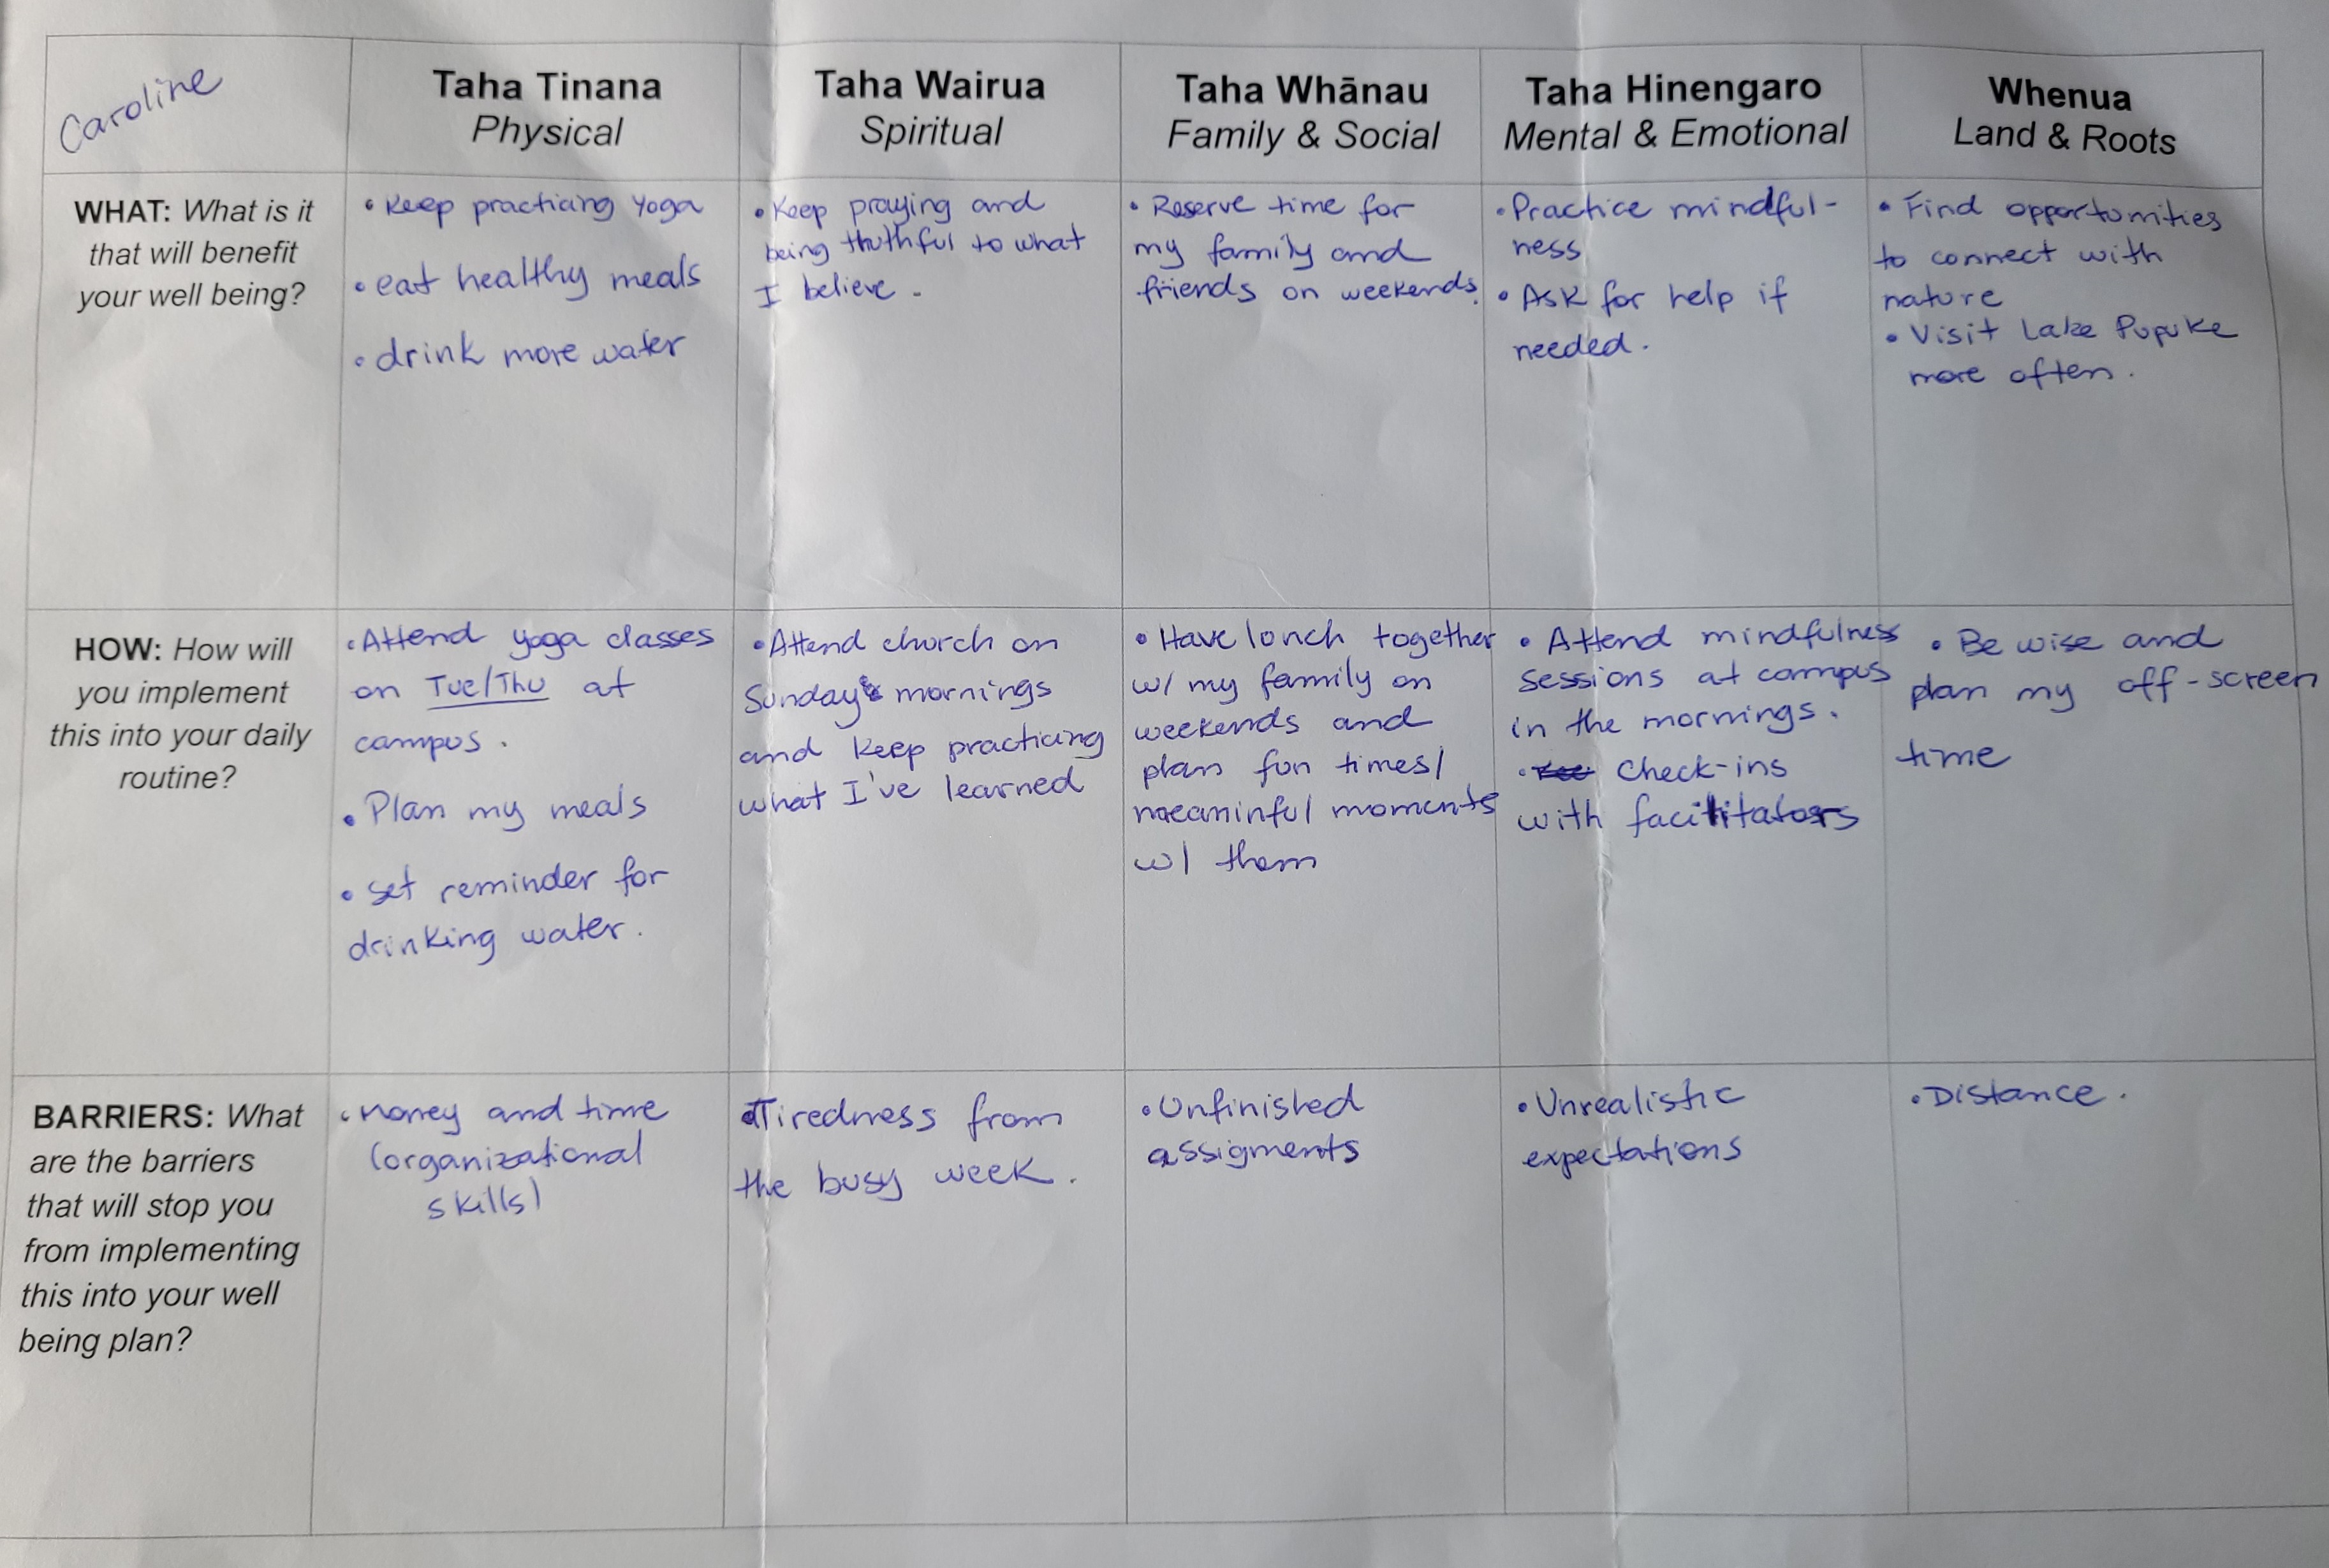 Caroline
Taha Tinana
Physical
Taha Wairua
Spiritual
Taha Whānau
Family & Social
Taha Hinengaro
Mental & Emotional
Whenua
Land & Roots
WHAT: What is it
that will benefit
your well being?
• Keep practicing Yoga
• eat healthy meals
• drink more water
• Keep praying and
being thuthful to what
I believe.
• Reserve time for
my family and
friends on weekends.
• Practice mindful-
ness
• Ask for help if
needed.
• Find opportunities
to connect with
nature
• Visit Lake Pupuke
more often.
HOW: How will
you implement
this into your daily
routine?
• Attend yoga classes
on Tue/Thu at
campus.
• Plan my meals
• set reminder for
drinking water.
• Attend church on
Sunday mornings
and keep practicing
what I've learned
• Have lunch together
w/ my family on
weekends and
plan fun times/
meaninful moments
w/ them
• Attend mindfulness
sessions at campus
in the mornings.
• check-ins
with facilitators
• Be wise and
plan my off-screen
time
BARRIERS: What
are the barriers
that will stop you
from implementing
this into your well
being plan?
• Money and time
(organizational
skills)
• Tiredness from
the busy week.
• Unfinished
assigments
• Unrealistic
expectations
• Distance.